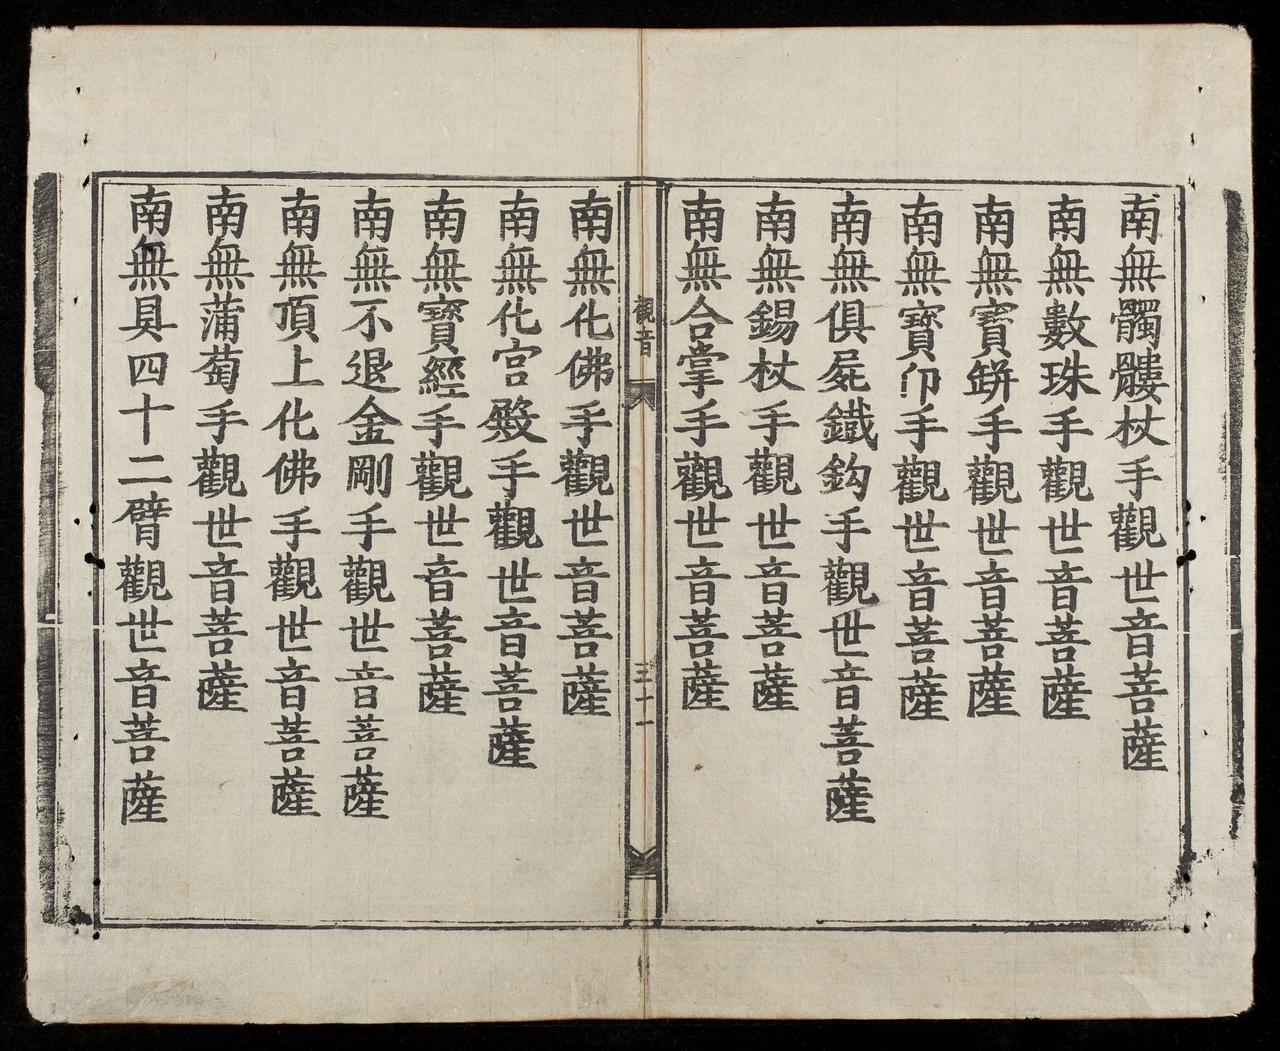 南無髑髏杖手觀世音菩薩
南無數珠手觀世音菩薩
南無寶鉼手觀世音菩薩
南無寶卬手觀世音菩薩
南無俱屍鐵鈎手觀世音菩薩
南無錫杖手觀世音菩薩
南無合掌手觀世音菩薩
觀音
三十一
南無化佛手觀世音菩薩
南無化宮殿手觀世音菩薩
南無寶經手觀世音菩薩
南無不退金剛手觀世音菩薩
南無頂上化佛手觀世音菩薩
南無蒲萄手觀世音菩薩
南無具四十二臂觀世音菩薩